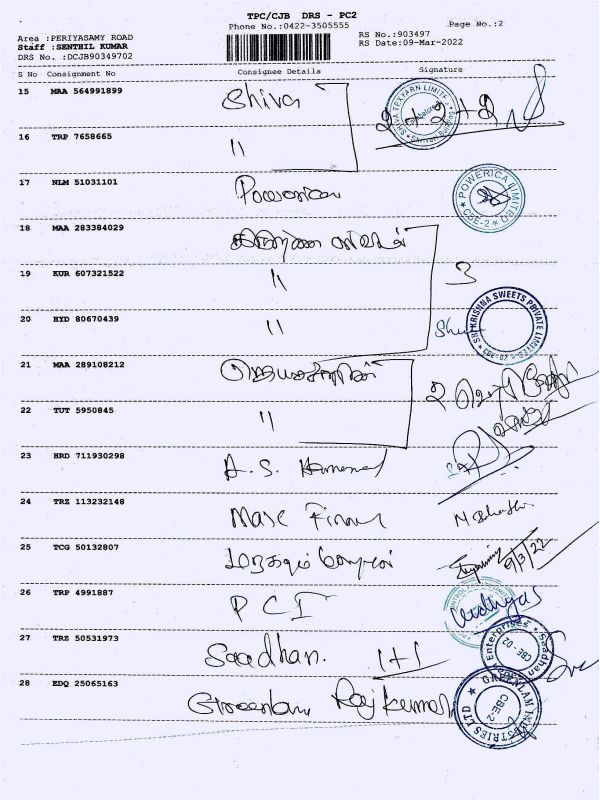 TPC/CJB DRS - PC2
Phone No.:0422-3505555
Page No.:2
Area :PERIYASAMY ROAD
Staff :SENTHIL KUMAR
DRS No. :DCJB90349702
RS No.:903497
RS Date:09-Mar-2022
S No Consignment No Consignee Details Signature
15 MAA 564991899 Shiva
SHIVA TEXYARN LIMITED
2+2
16 TRP 7658665 "
17 NLM 51031101 Powerica
POWERICA LIMITED
CBE-2
18 MAA 283384029
19 KUR 607321522 " 3
20 HYD 80670439 "
SRI KRISHNA SWEETS PRIVATE LIMITED
CBE-02
21 MAA 289108212
2
22 TUT 5950845 "
23 HRD 711930298 A. S.
24 TRZ 113232148
25 TCG 50132807
9/3/22
26 TRP 4991887 PCI
27 TRZ 50531973 Saadhan. 1+1
Saadhan Enterprises
CBE - 02
28 EDQ 25065163 Greenlam Rajkumar
GREENLAM INDUSTRIES LTD
CBE-2